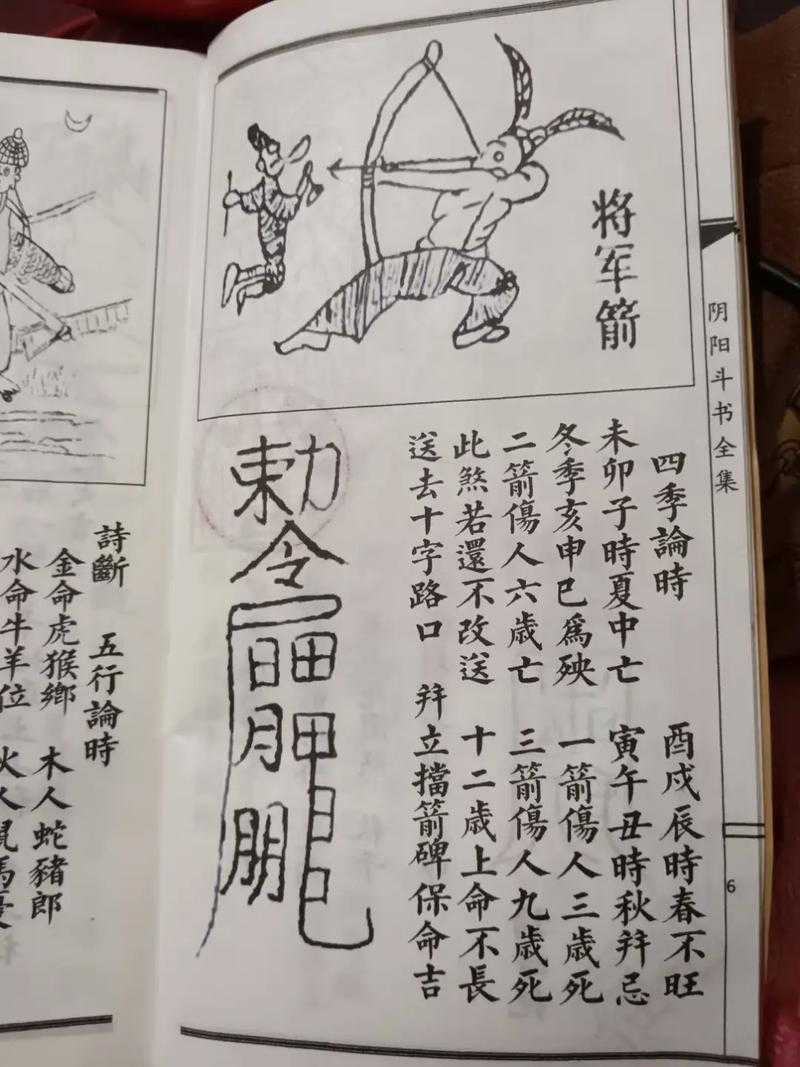 将军箭
阴阳斗书全集
四季論時 酉戌辰時春不旺
未卯子時夏中亡 寅午丑時秋 忌
冬季亥申巳爲殃 一箭傷人三歲死
二箭傷人六歲亡 三箭傷人九歲死
此煞若還不改送 十二歲上命不長
送去十字路口 立擋箭碑保命吉
勅令
6
詩斷 五行論時
金命虎猴鄉 木人蛇豬郎
水命牛羊位 火人鼠馬